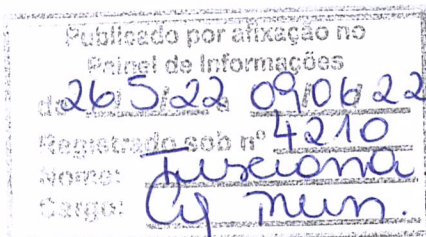 Publicado por afixação no
Painel de Informações
de 26/5/22 a 09/06/22
Registrado sob nº 4210
Nome:
Cargo: mun.